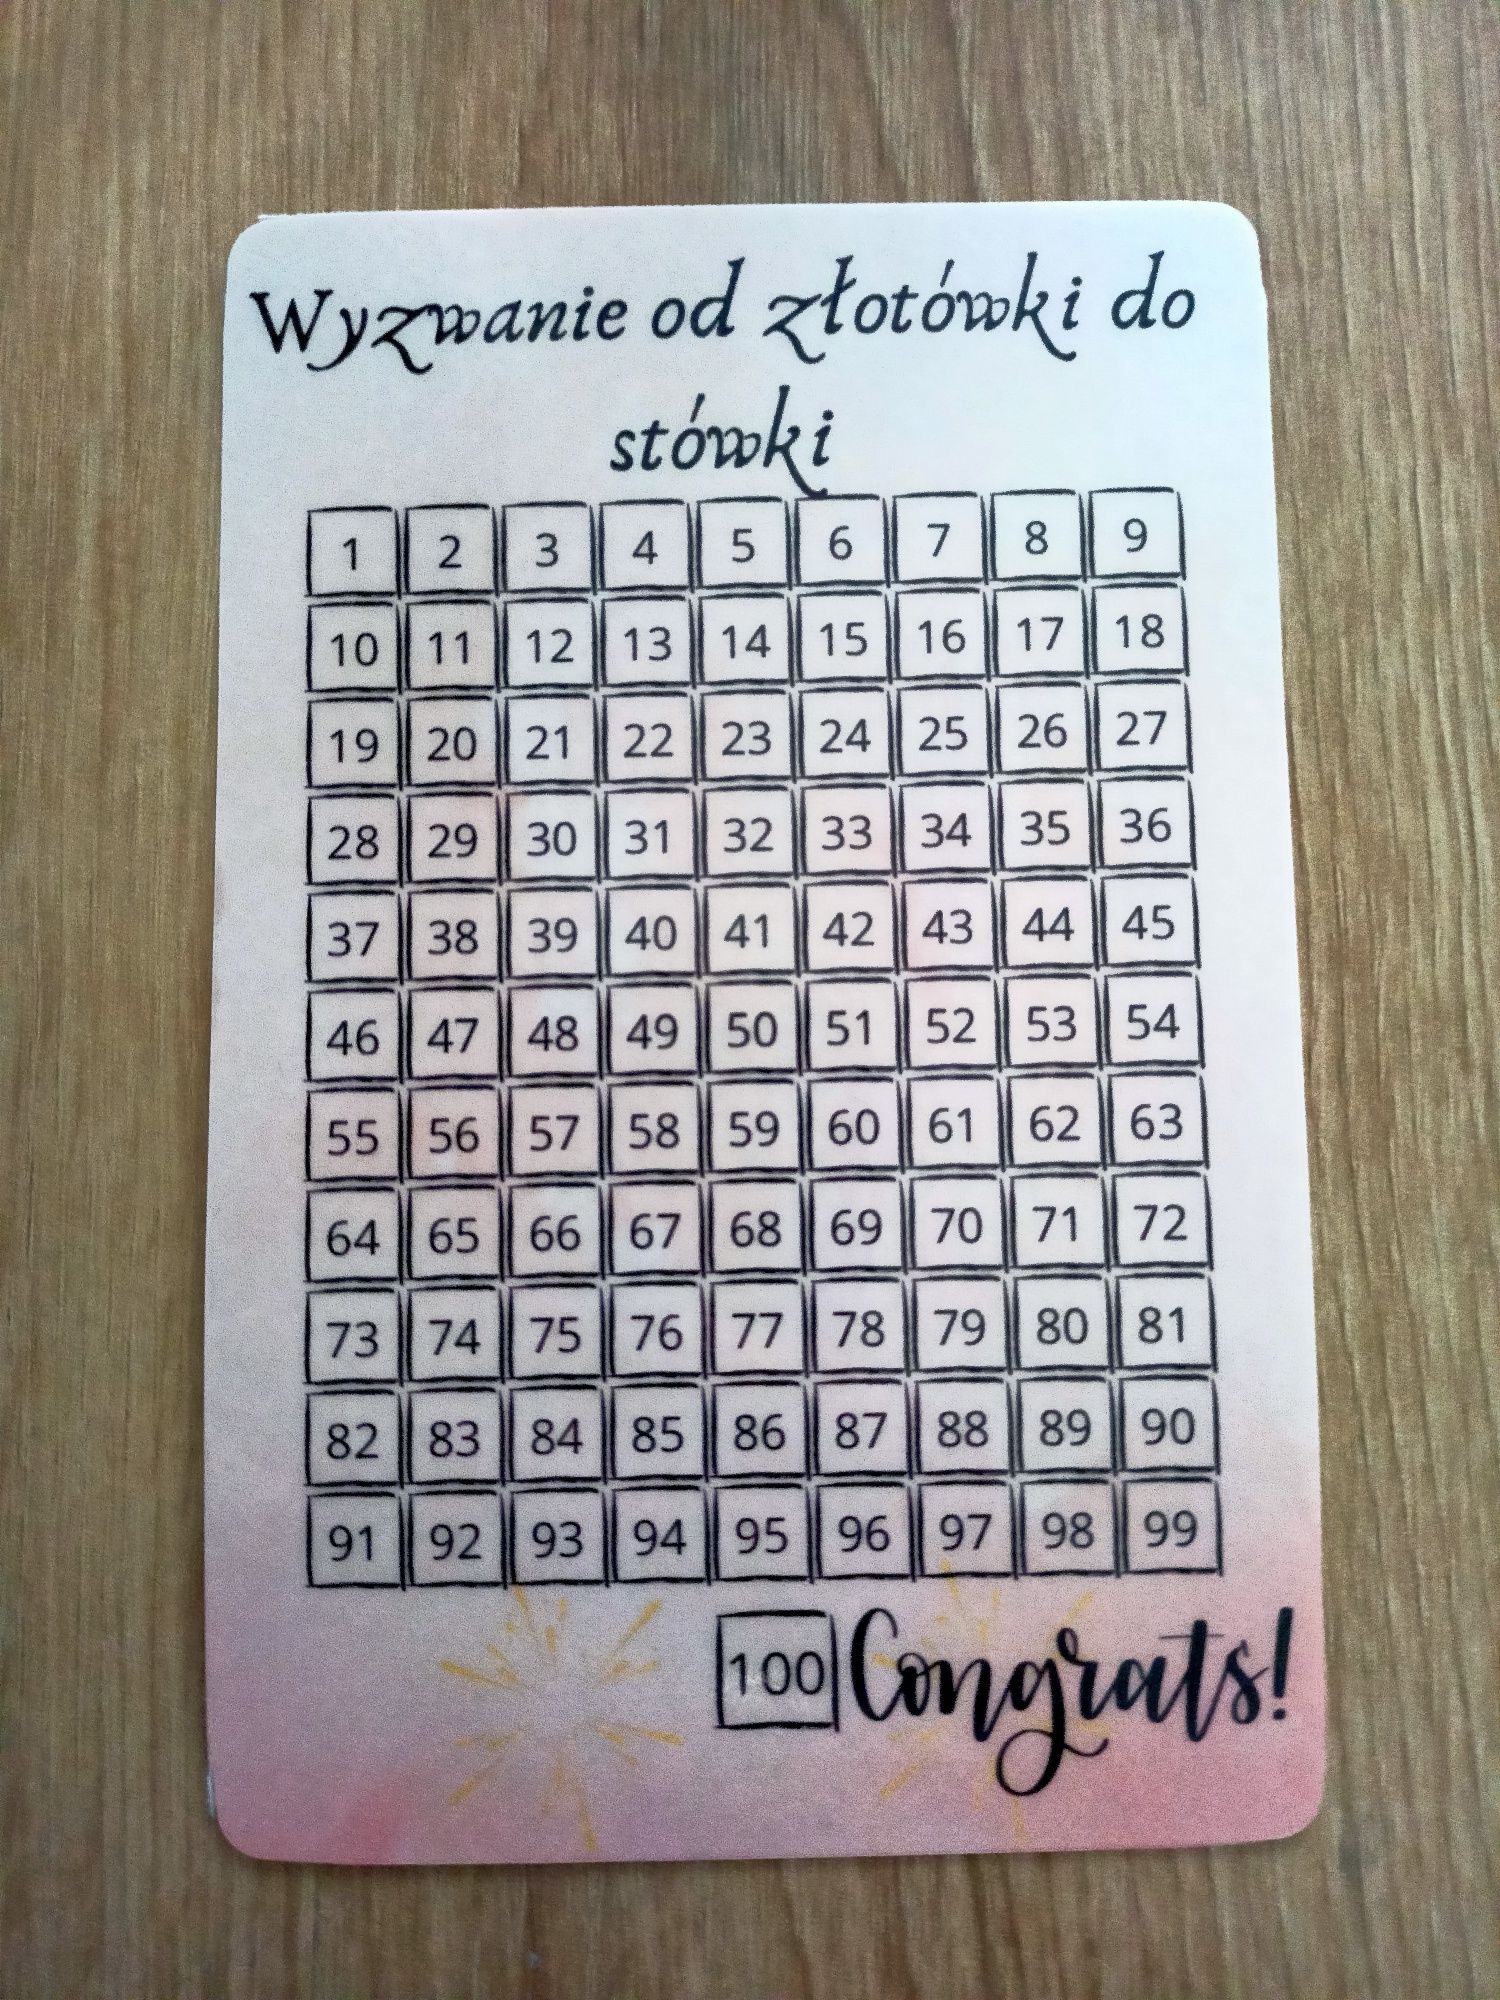 Wyzwanie od złotówki do
stówki
1 2 3 4 5 6 7 8 9
10 11 12 13 14 15 16 17 18
19 20 21 22 23 24 25 26 27
28 29 30 31 32 33 34 35 36
37 38 39 40 41 42 43 44 45
46 47 48 49 50 51 52 53 54
55 56 57 58 59 60 61 62 63
64 65 66 67 68 69 70 71 72
73 74 75 76 77 78 79 80 81
82 83 84 85 86 87 88 89 90
91 92 93 94 95 96 97 98 99
100 Congrats!